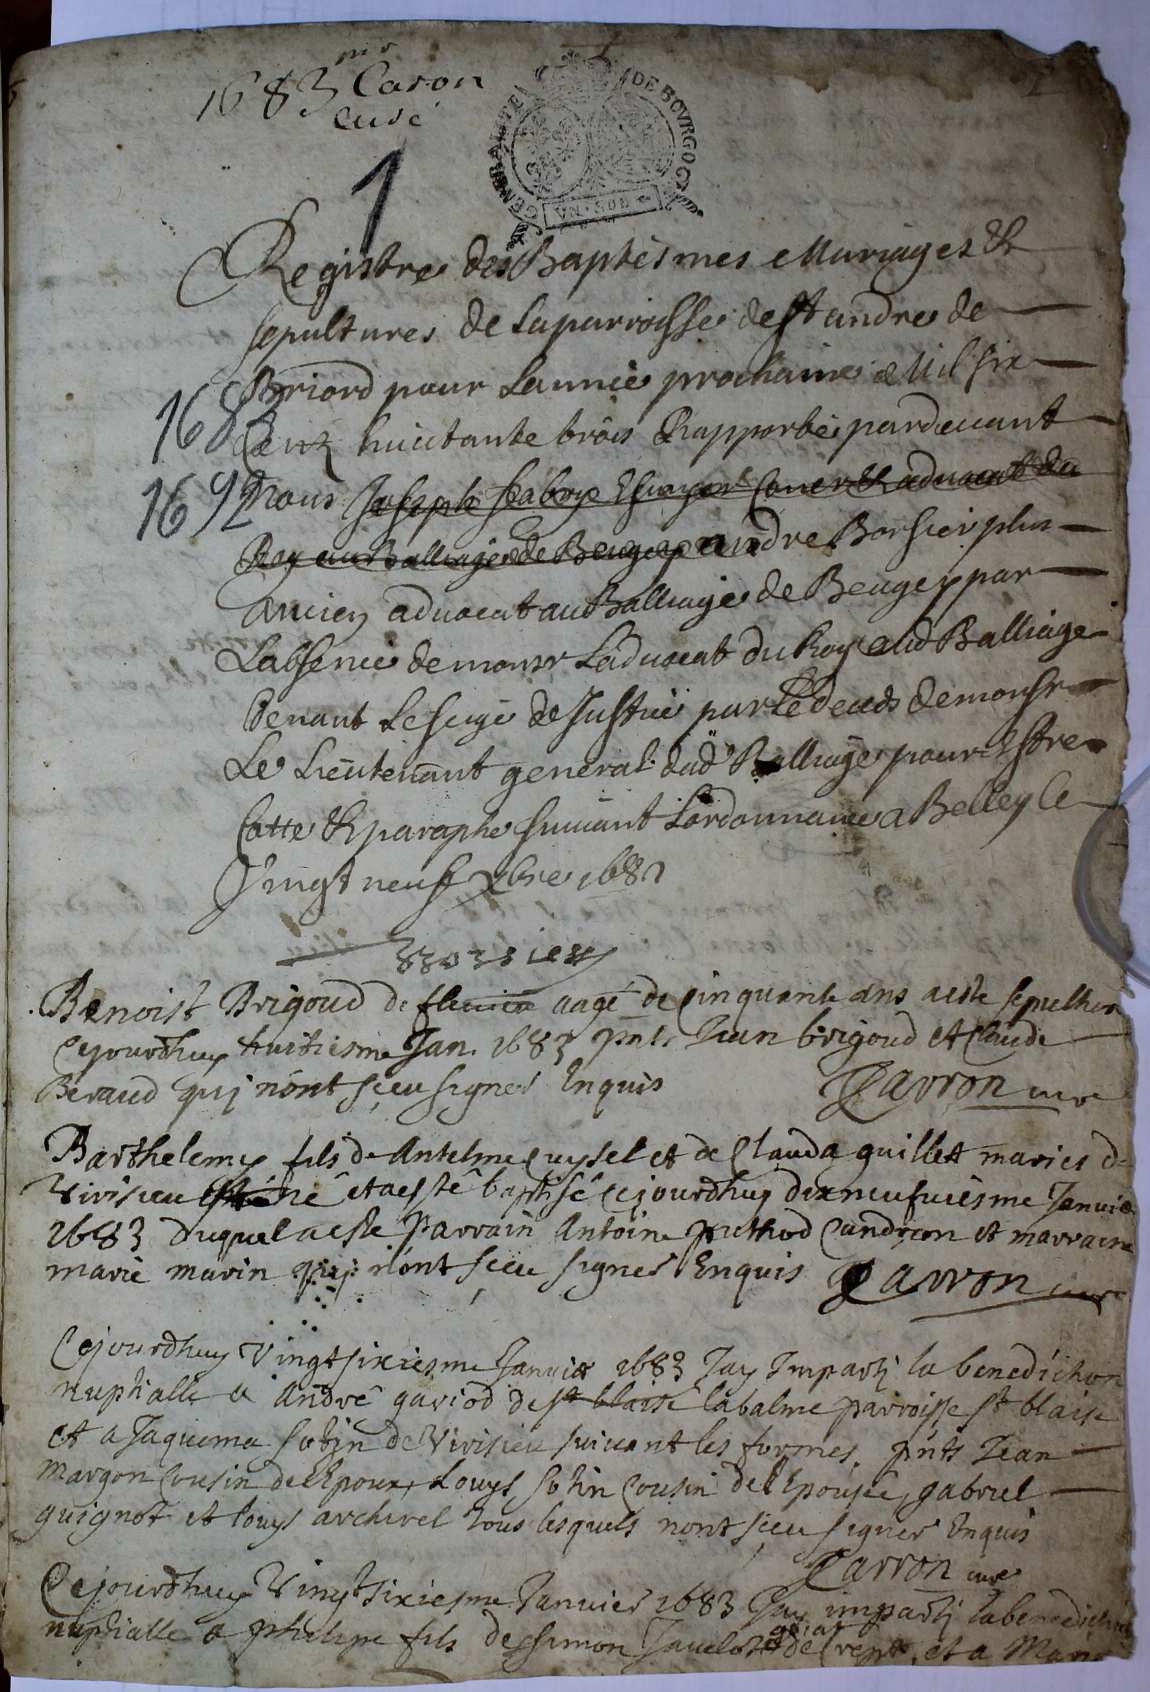 1683 Caron
Curé
1
GENERALITE DE BOVRGOG
VN·SOL
Registre des Baptesmes Mariages &
sepultures de La parroisse de St andre de
Briord pour Lannee prochaine Mil six
1683
Cent huictante trois Rapporté pardeuant
1692
Nous Joseph seaboz Escuyer Con.er & aduocat du
Roy au Balliage de Beugey andre Borsier plus
Ancien aduocat au Balliage de Beugey par
Labsence de monsr Laduocat du Roy aud Balliage
Tenant Le siege de Justice par Le deceds de monsr
Le Lieutenant general dud Balliage pour Estre
Cotte & paraphe suiuant Lordonnance a Belley le
Vingt neuf Xbre 1682
Benoist Brigoud de aagé de Cinquante ans a esté sepulturé
Cejourdhuy huitiesme Jan. 1683 pnts Jean brigoud et Claude
Beraud quj n'ont sceu signer Enquis Carron curé
Barthelemy fils de Antelme Cuysel et de Clauda guillet mariés de
Virisieu est né et a esté baptisé Cejourdhuy dixneufuiesme Januier
1683 duquel a esté parrain Antoine puthod Candron et marraine
marie marin quj n'ont sceu signer Enquis Carron curé
Cejourdhuy Vingtsixiesme Januier 1683 Jay Imparti la benediction
nuptialle a André gariod de st blaise labalme parroisse st blaise
et a Jaquema sotin de Virisieu suiuant les formes. pnts Jean
Margon Cousin de l'Epoux, Louys sotin Cousin de l'Epousée, gabriel
guignot et louys archerel tous lesquels nont sceu signer Enquis
Carron curé
Cejourdhuy Vingtsixiesme Januier 1683 Jay imparti la benediction
nuptialle a philippe fils de simon Jauelot de Crept, et a Mari